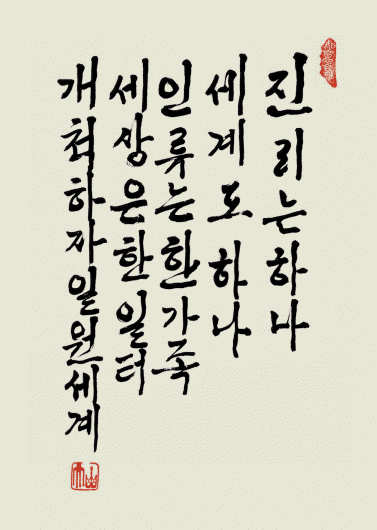 진리는하나
세계도하나
인류는한가족
세상은한일터
개척하자일원세계